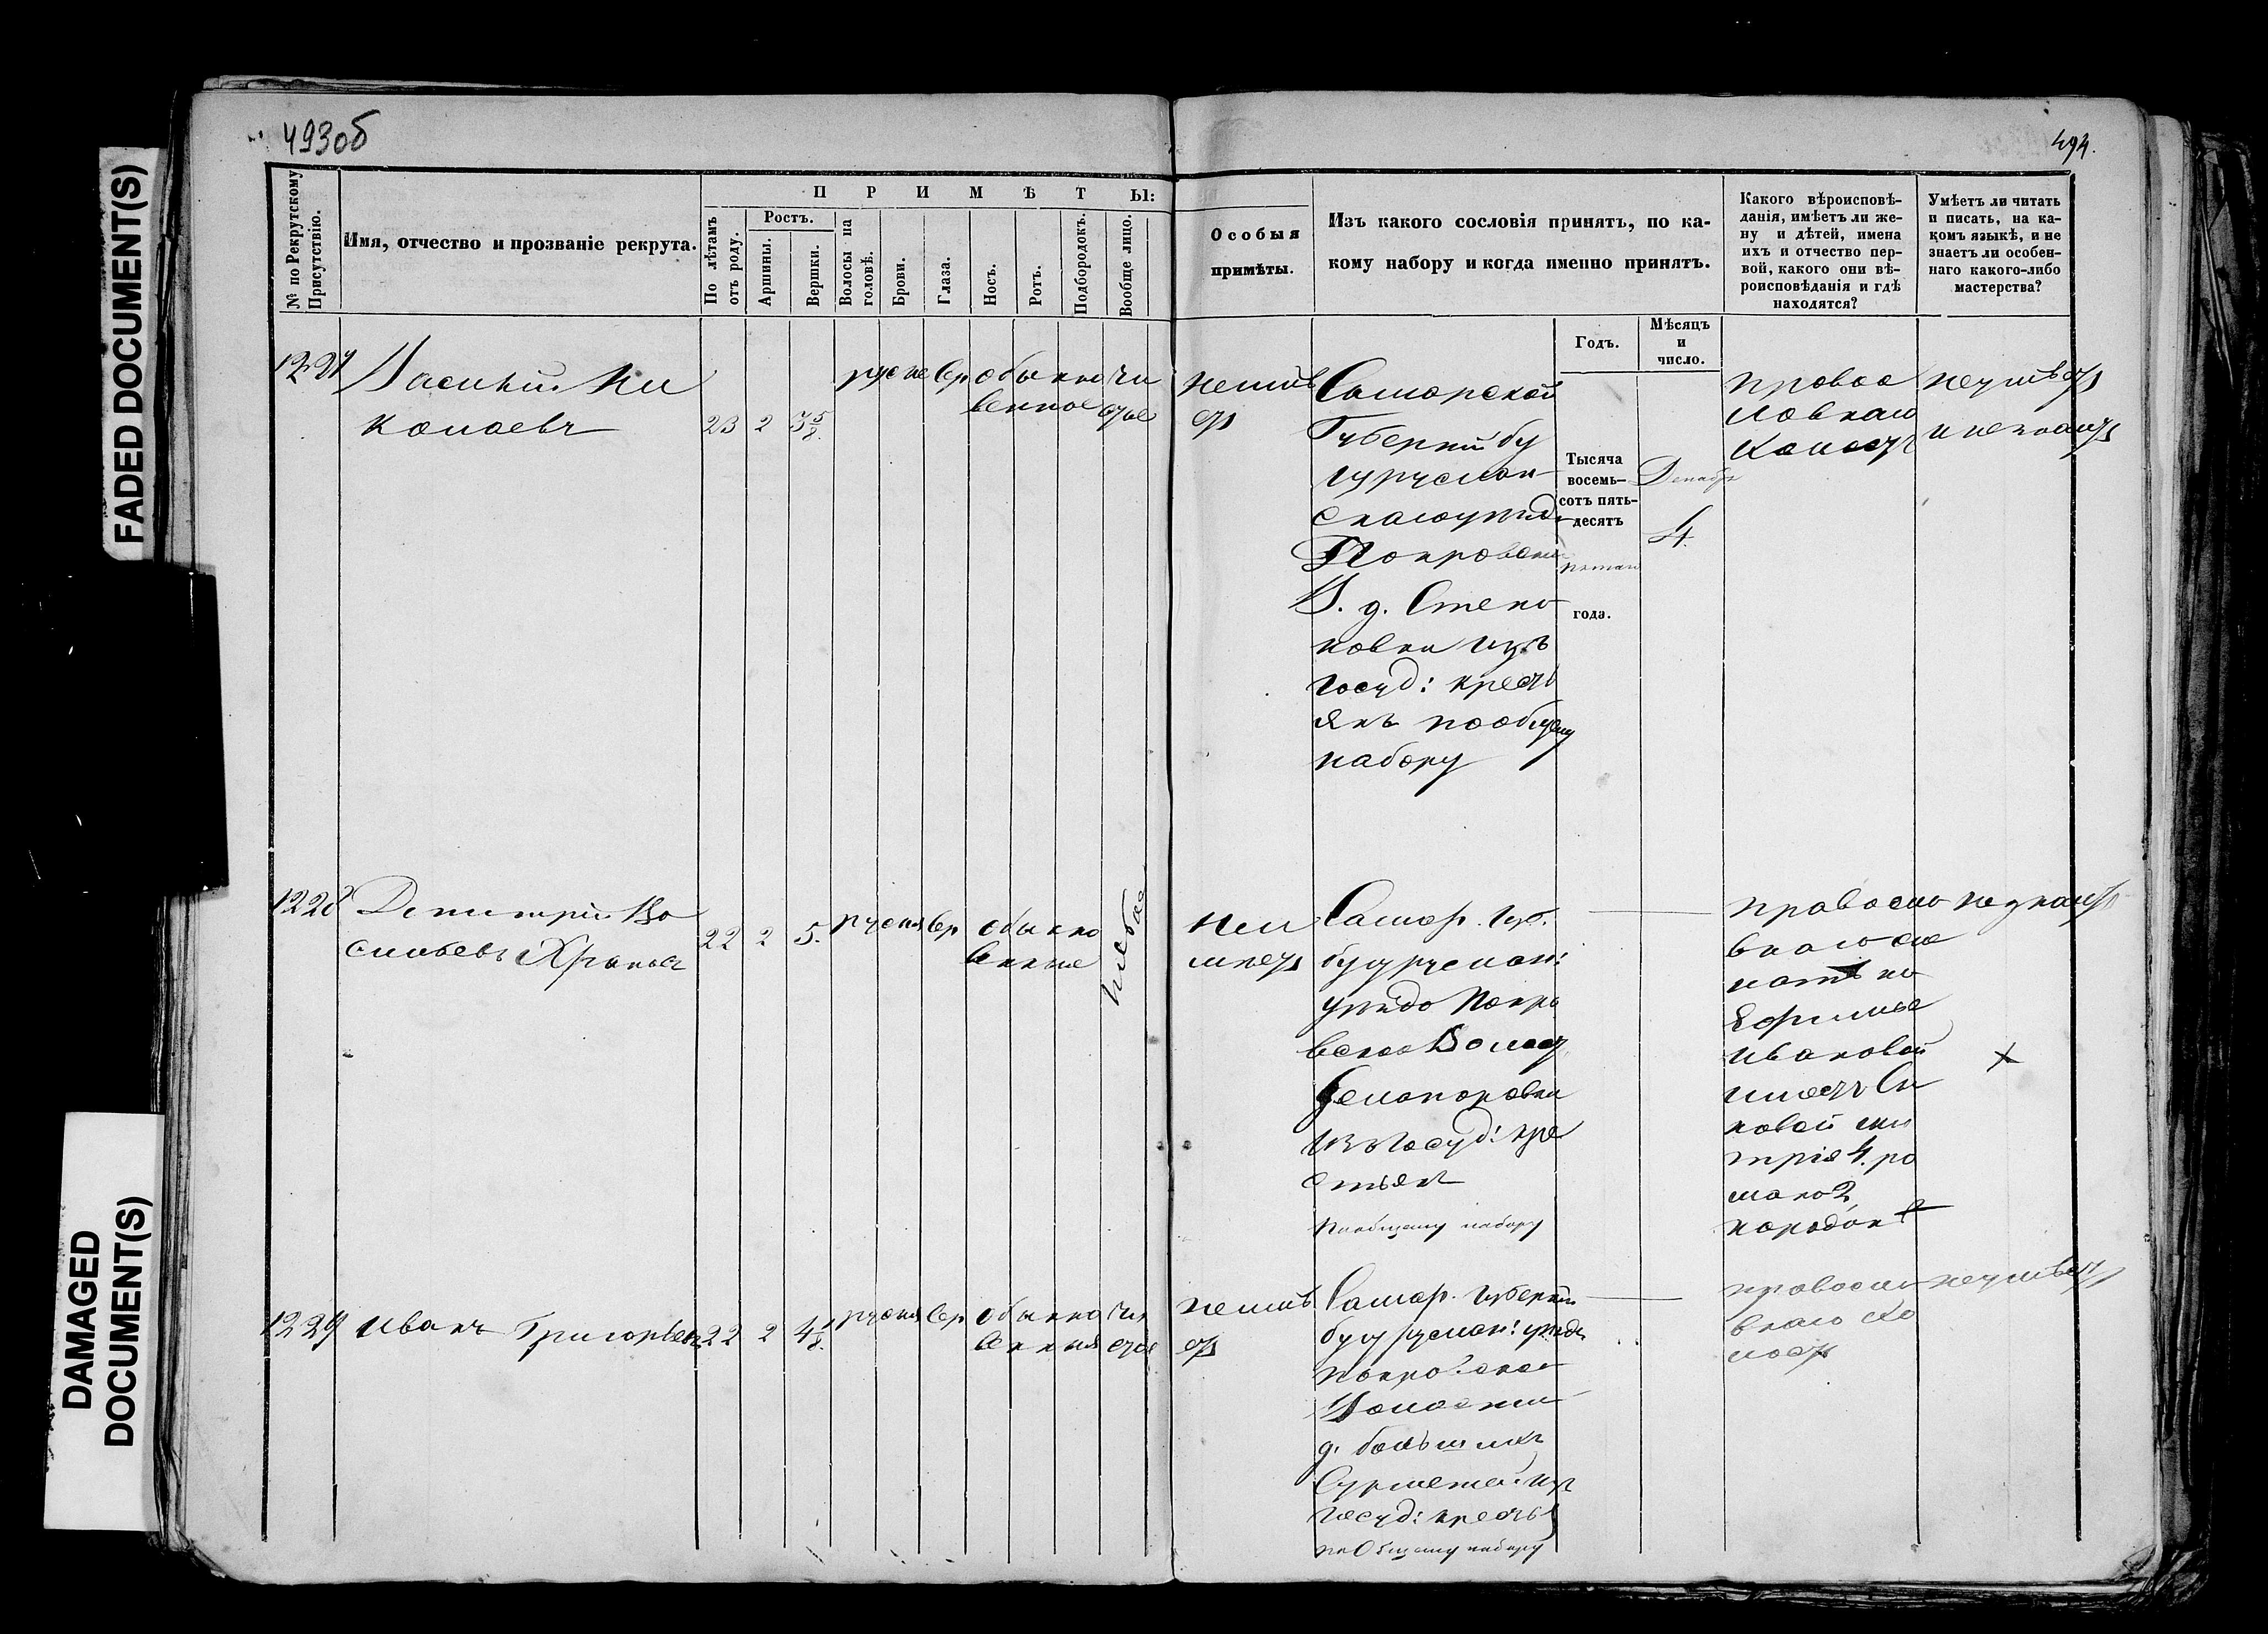 493об
494.
№ по Рекрутскому Присутствію.
Имя, отчество и прозваніе рекрута.
ПРИМѢТЫ:
По лѣтамъ отъ роду.
Ростъ.
Аршины.
Вершки.
Волосы на головѣ.
Брови.
Глаза.
Носъ.
Ротъ.
Подбородокъ.
Вообще лицо.
Особыя
примѣты.
Изъ какого сословія принятъ, по ка-
кому набору и когда именно принятъ.
Годъ.
Мѣсяцъ
и
число.
Какого вѣроисповѣ-
данія, имѣетъ ли же-
ну и дѣтей, имена
ихъ и отчество пер-
вой, какого они вѣ-
роисповѣданія и гдѣ
находятся?
Умѣетъ ли читать
и писать, на ка-
комъ языкѣ, и не
знаетъ ли особен-
наго какого-либо
мастерства?
1227
Василий Ни
колаевъ
23 2 3 5/8.
русые Сер обыкно
венное
чи
стое
неимѣ
етъ
Самарской
Губернии бу
гуруслан
скаго уѣзда
Покровской
В. д. Степа
новки изъ
госуд: крест
янъ пообщему
набору
Тысяча
восемь-
сотъ пять-
десятъ
пятаго
года.
Декабр
4.
правос
лавнаго
холостъ
неумѣетъ
и незнаетъ
1228
Дмитрий Ва
сильевъ
22 2 5.
русыя Сер обыкно
венные
рябое
Неи
меетъ
Самар. Губ.
бугуруслан:
уѣзда Покро
вской Волост
изъ Госуд: кре
стьян
пообщему набору
правосла
внаго же
натъ на
Ефимье
Ивановой
имеетъ Сы
новей Дми
трія 4. ро
мана 2
народин
незнаетъ
1229
Иванъ Григорьевъ
22 2 4 1/8.
русыя Сер обыкно
венныя
чи
стое
неимѣ
етъ
Самар. Губерни
бугуруслан: уѣзда
покровской
Волости
д.
Сурметей изъ
госуд: кресть
по Общему набору
правосла
внаго хо
лостъ
неумѣетъ
FADED DOCUMENT(S)
DAMAGED
DOCUMENT(S)